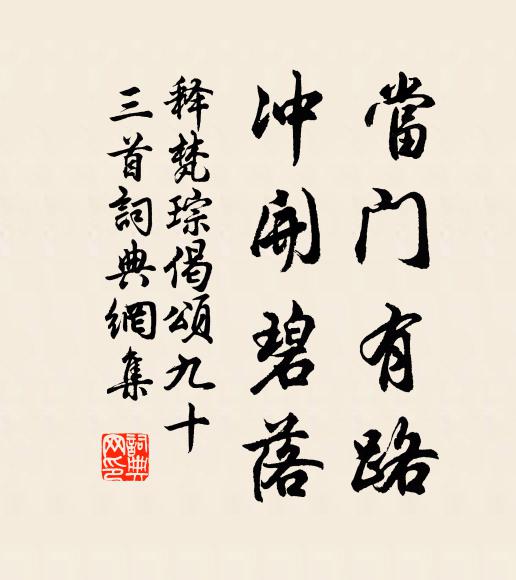 當门有路
冲開碧落
释梵琮偈颂九十
三首詞典網集
詞典网印